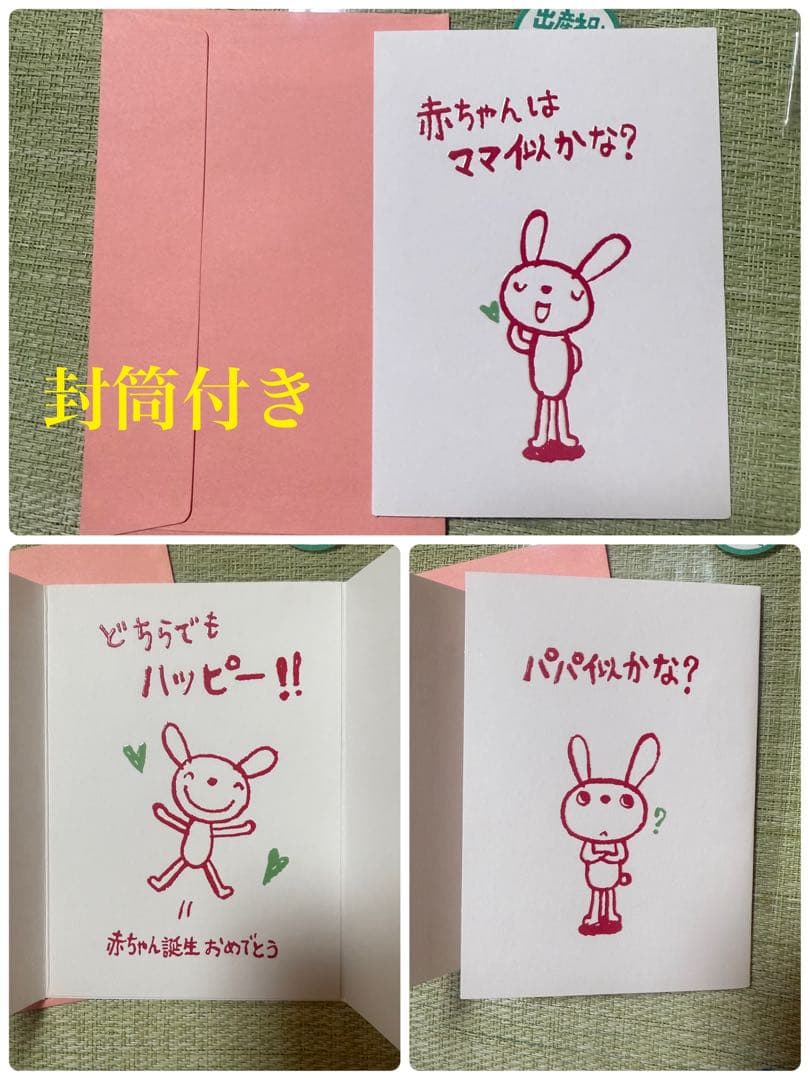 出産祝い
赤ちゃんは
ママ似かな?
封筒付き
どちらでも
ハッピー!!
赤ちゃん誕生おめでとう
パパ似かな?
?